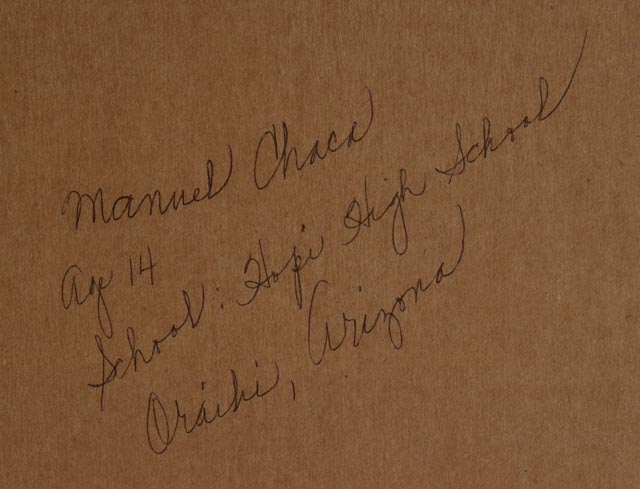 Manuel Chaca
Age 14
School: Hopi High School
Oraibi, Arizona